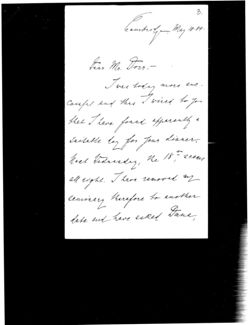 3
Cambridge May
Dear Mr. Dorr,-
I was today more suc-
cessful and thus I wired to you
that I have found apparently a
suitable day for your dinner.
Next Wednesday, the 18th seems
all right. I have removed my
therefore to another
date and have asked Dana,